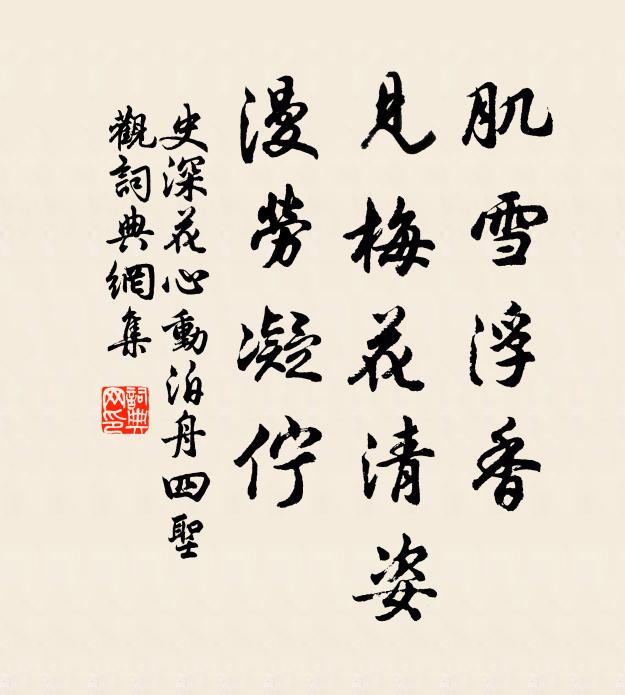 肌雪浮香
見梅花清姿
漫勞凝佇
史深花心動泊舟四聖
觀詞典網集
詞典网印